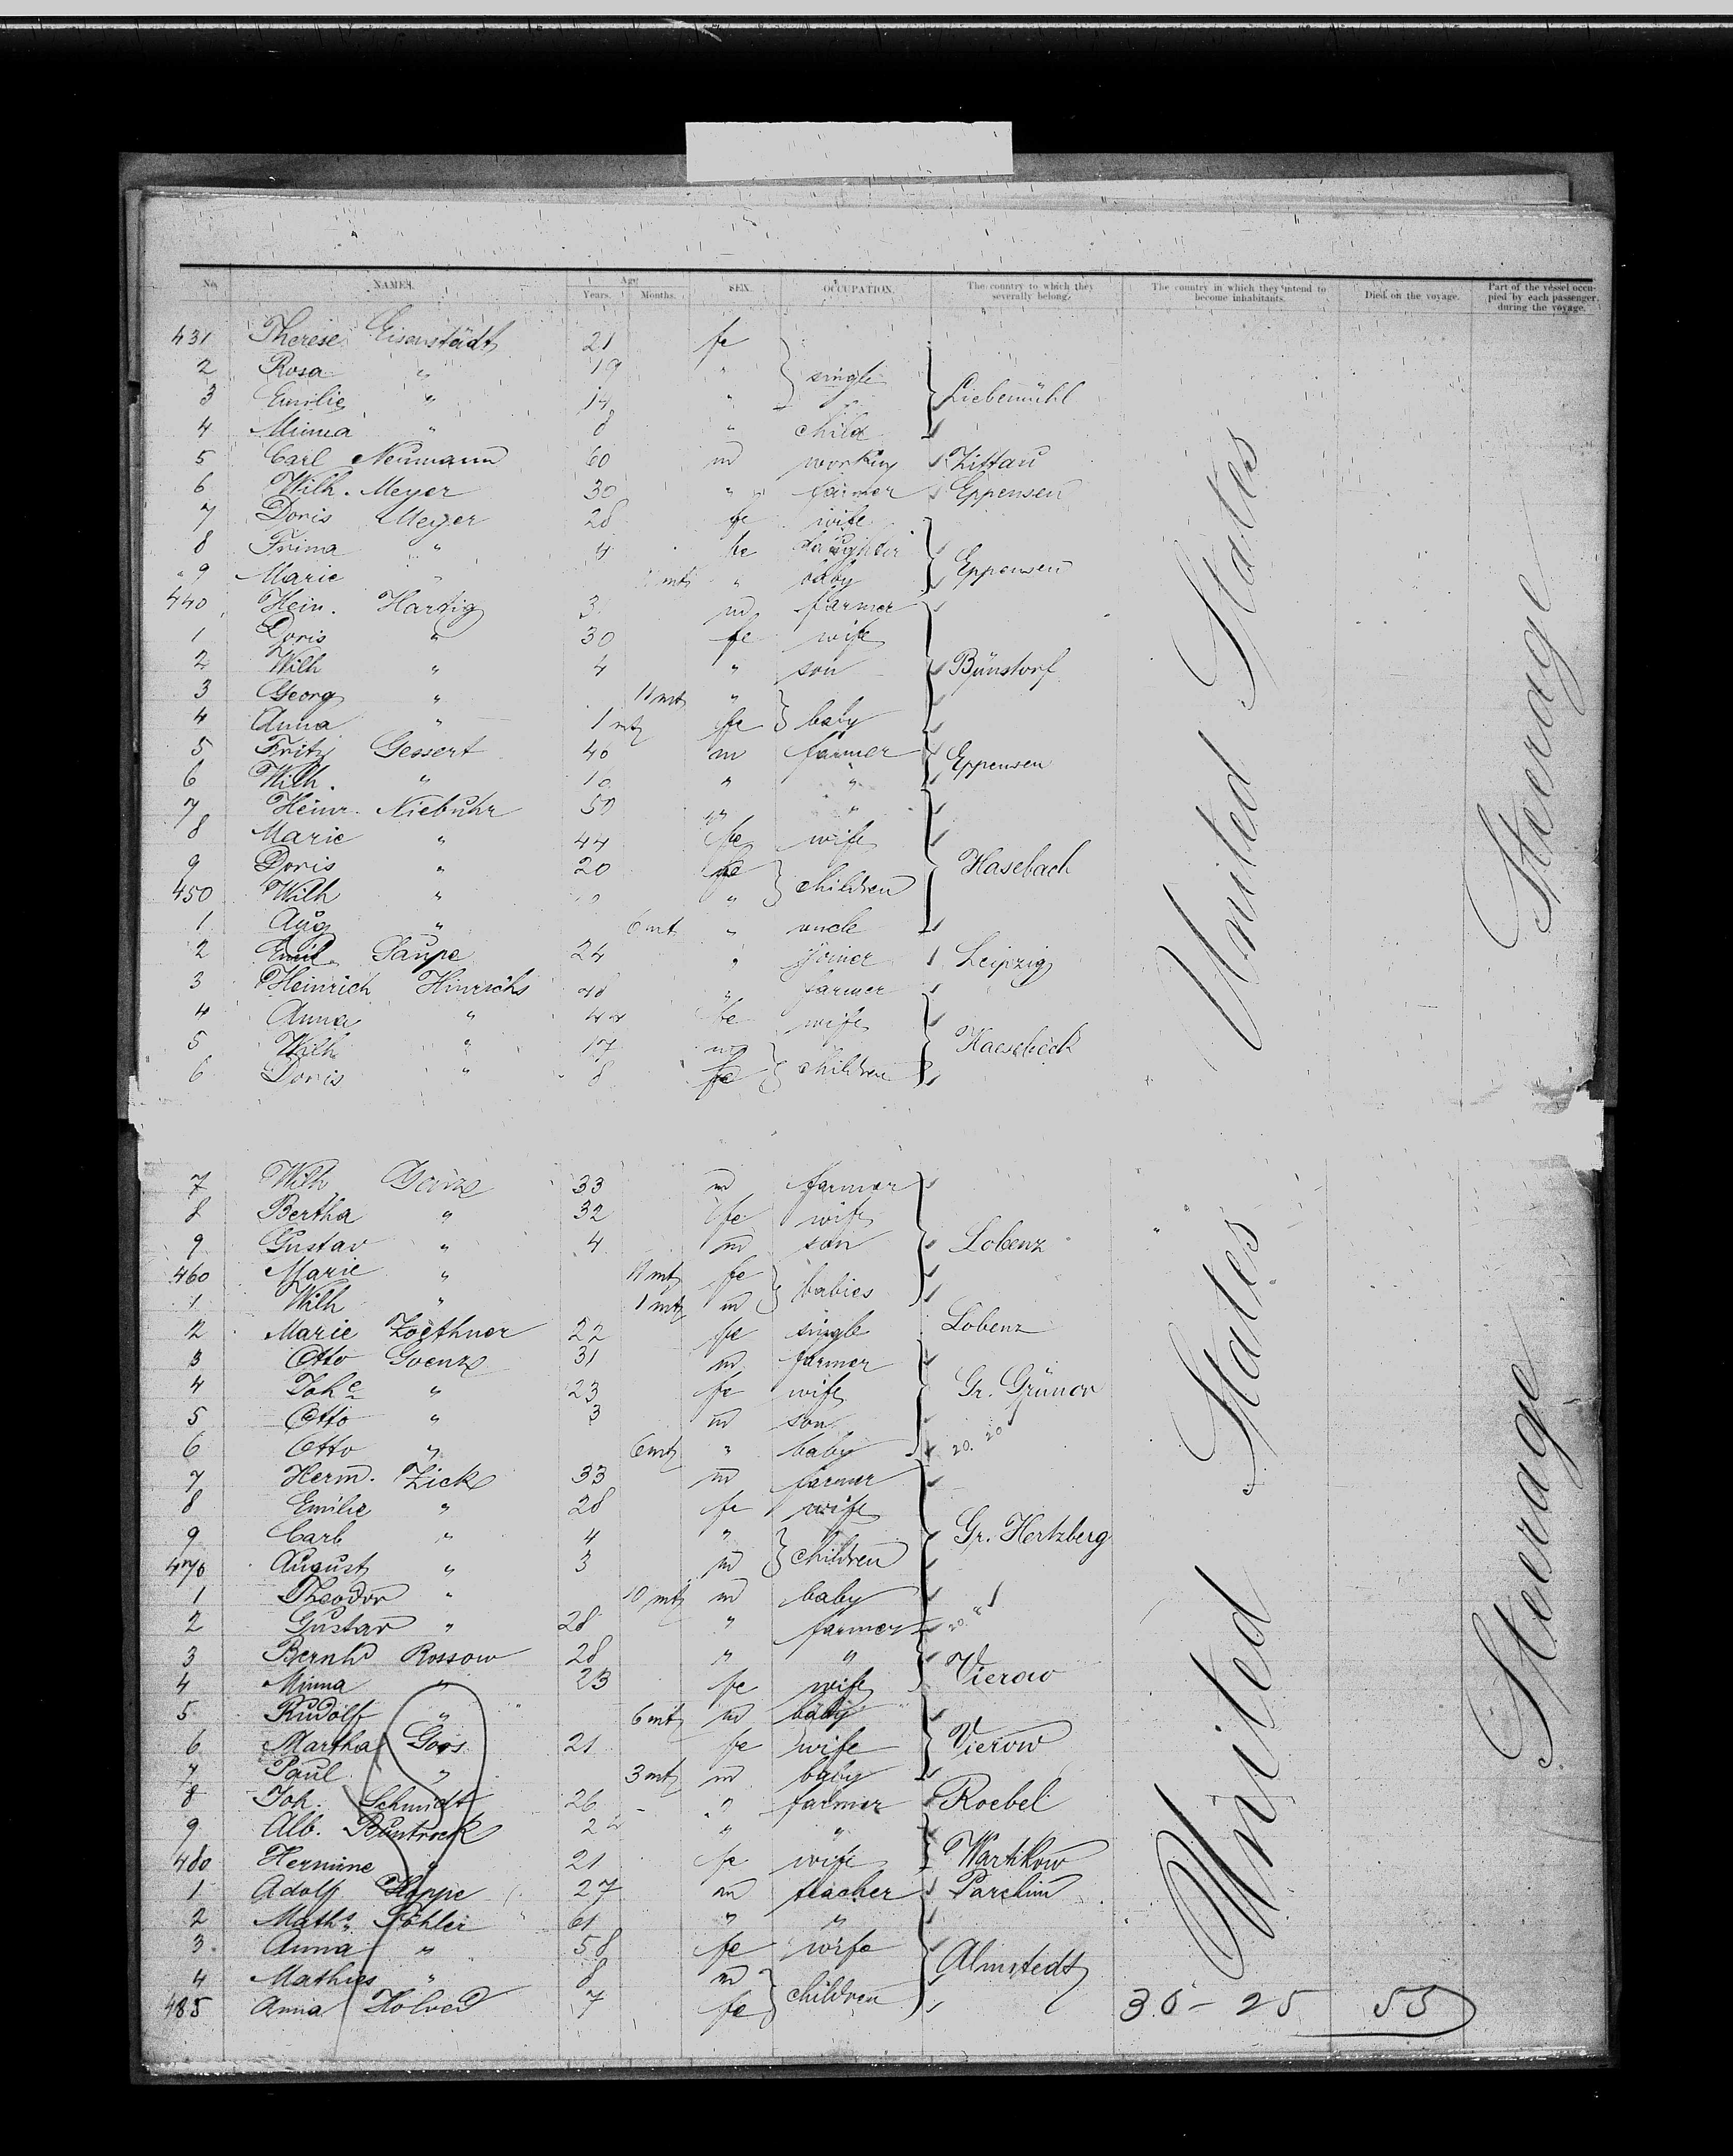 No. NAMES. Age Years. Months. SEX. OCCUPATION. The country to which they severally belong. The country in which they intend to become inhabitants. Died on the voyage. Part of the vessel occupied by each passenger during the voyage.
431 Therese Eisenstädt 21 fe
2 Rosa " 19 " single
3 Emilie " 14 " Liebemühl
4 Minna " 8 " child
5 Carl Neumann 60 m working Zittau
6 Wilh. Meyer 30 " farmer Eppensen
7 Doris Meyer 28 fe wife
8 Frima " 4 fe daughter Eppensen
9 Marie " mts " baby
440 Hein. Hartig m farmer
1 Doris " 30 fe wife
2 Wilh " 4 " son Bünstorf
3 Georg " 11 mts "
4 Anna " 1 mts fe baby
5 Fritz Gessert 40 m farmer Eppensen
6 Wilh. " " "
7 Heinr. Niebuhr 50 " "
8 Marie " 44 fe wife
9 Doris " 20 fe children Hasebach
450 Wilh " "
1 Aug " 6 mt " uncle
2 Emil Saupe 24 " joiner Leipzig
3 Heinrich Hinrichs 48 " farmer
4 Anna " fe wife
5 Wilh " 17 m children Haesebeck
6 Doris " 8 fe
7 Wilh 33 m farmer
8 Bertha " 32 fe wife
9 Gustav " 4 m son Lobenz
460 Marie " 11 mts fe babies
1 Wilh " 1 mts m
2 Marie Zoethner 22 fe single Lobenz
3 Otto Goenz 31 m farmer
4 Johe " 23 fe wife Gr. Grünow
5 Otto " 3 m son
6 Otto " 6 mts " baby
7 Herm. Zick 33 m farmer
8 Emilie " 28 fe wife
9 Carl " 4 " children Gr. Hertzberg
470 August " 3 m
1 Theodor " 10 mts m baby "
2 Gustav " 28 " farmer
3 Bernhd Rossow 28 " " Vierow
4 Minna " 23 fe wife
5 Rudolf " 6 mt m baby
6 Martha Goos 21 fe wife Vierow
7 Paul " 3 mts m baby
8 Joh. Schmidt 26 " farmer Roebel
9 Alb. Buntrock " "
480 Hermine " 21 fe wife Wartkow
1 Adolf Hoppe 27 m teacher Parchim
2 Maths Köhler 61 " "
3 Anna " 58 fe wife Almstedt
4 Mathies " 8 m children
485 Anna Holved 7 fe
United States
Steerage
United States
Steerage
30 - 25 55